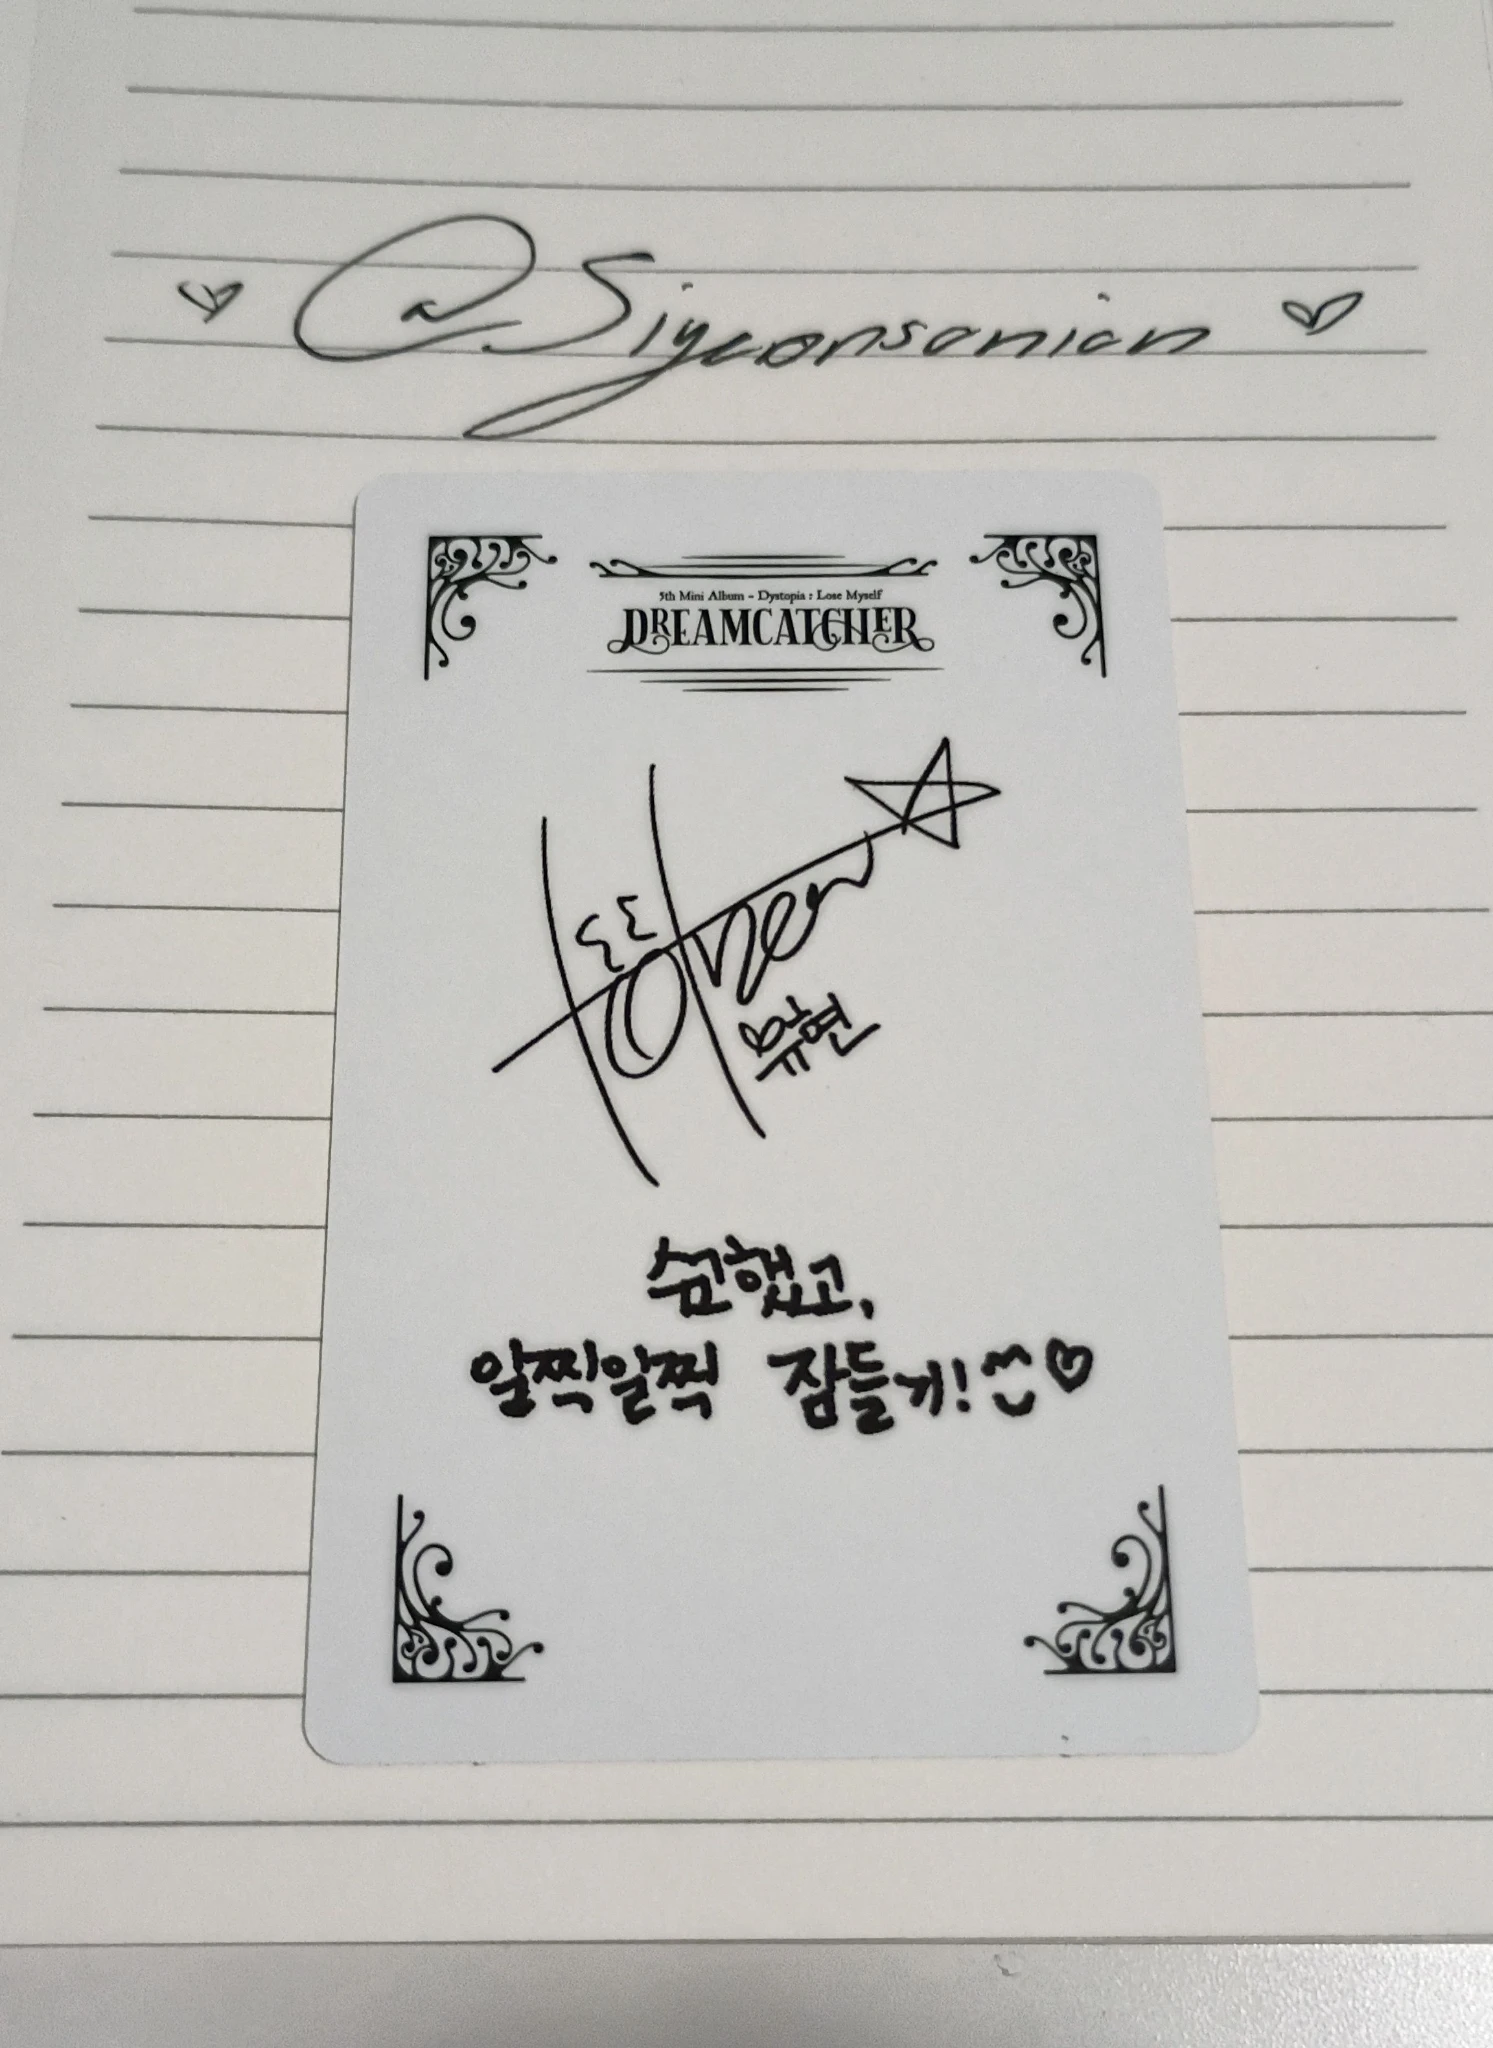 @Siyeonsanian
5th Mini Album - Dystopia : Lose Myself
DREAMCATCHER
유현
숨했고,
일찍일찍 잠들기!